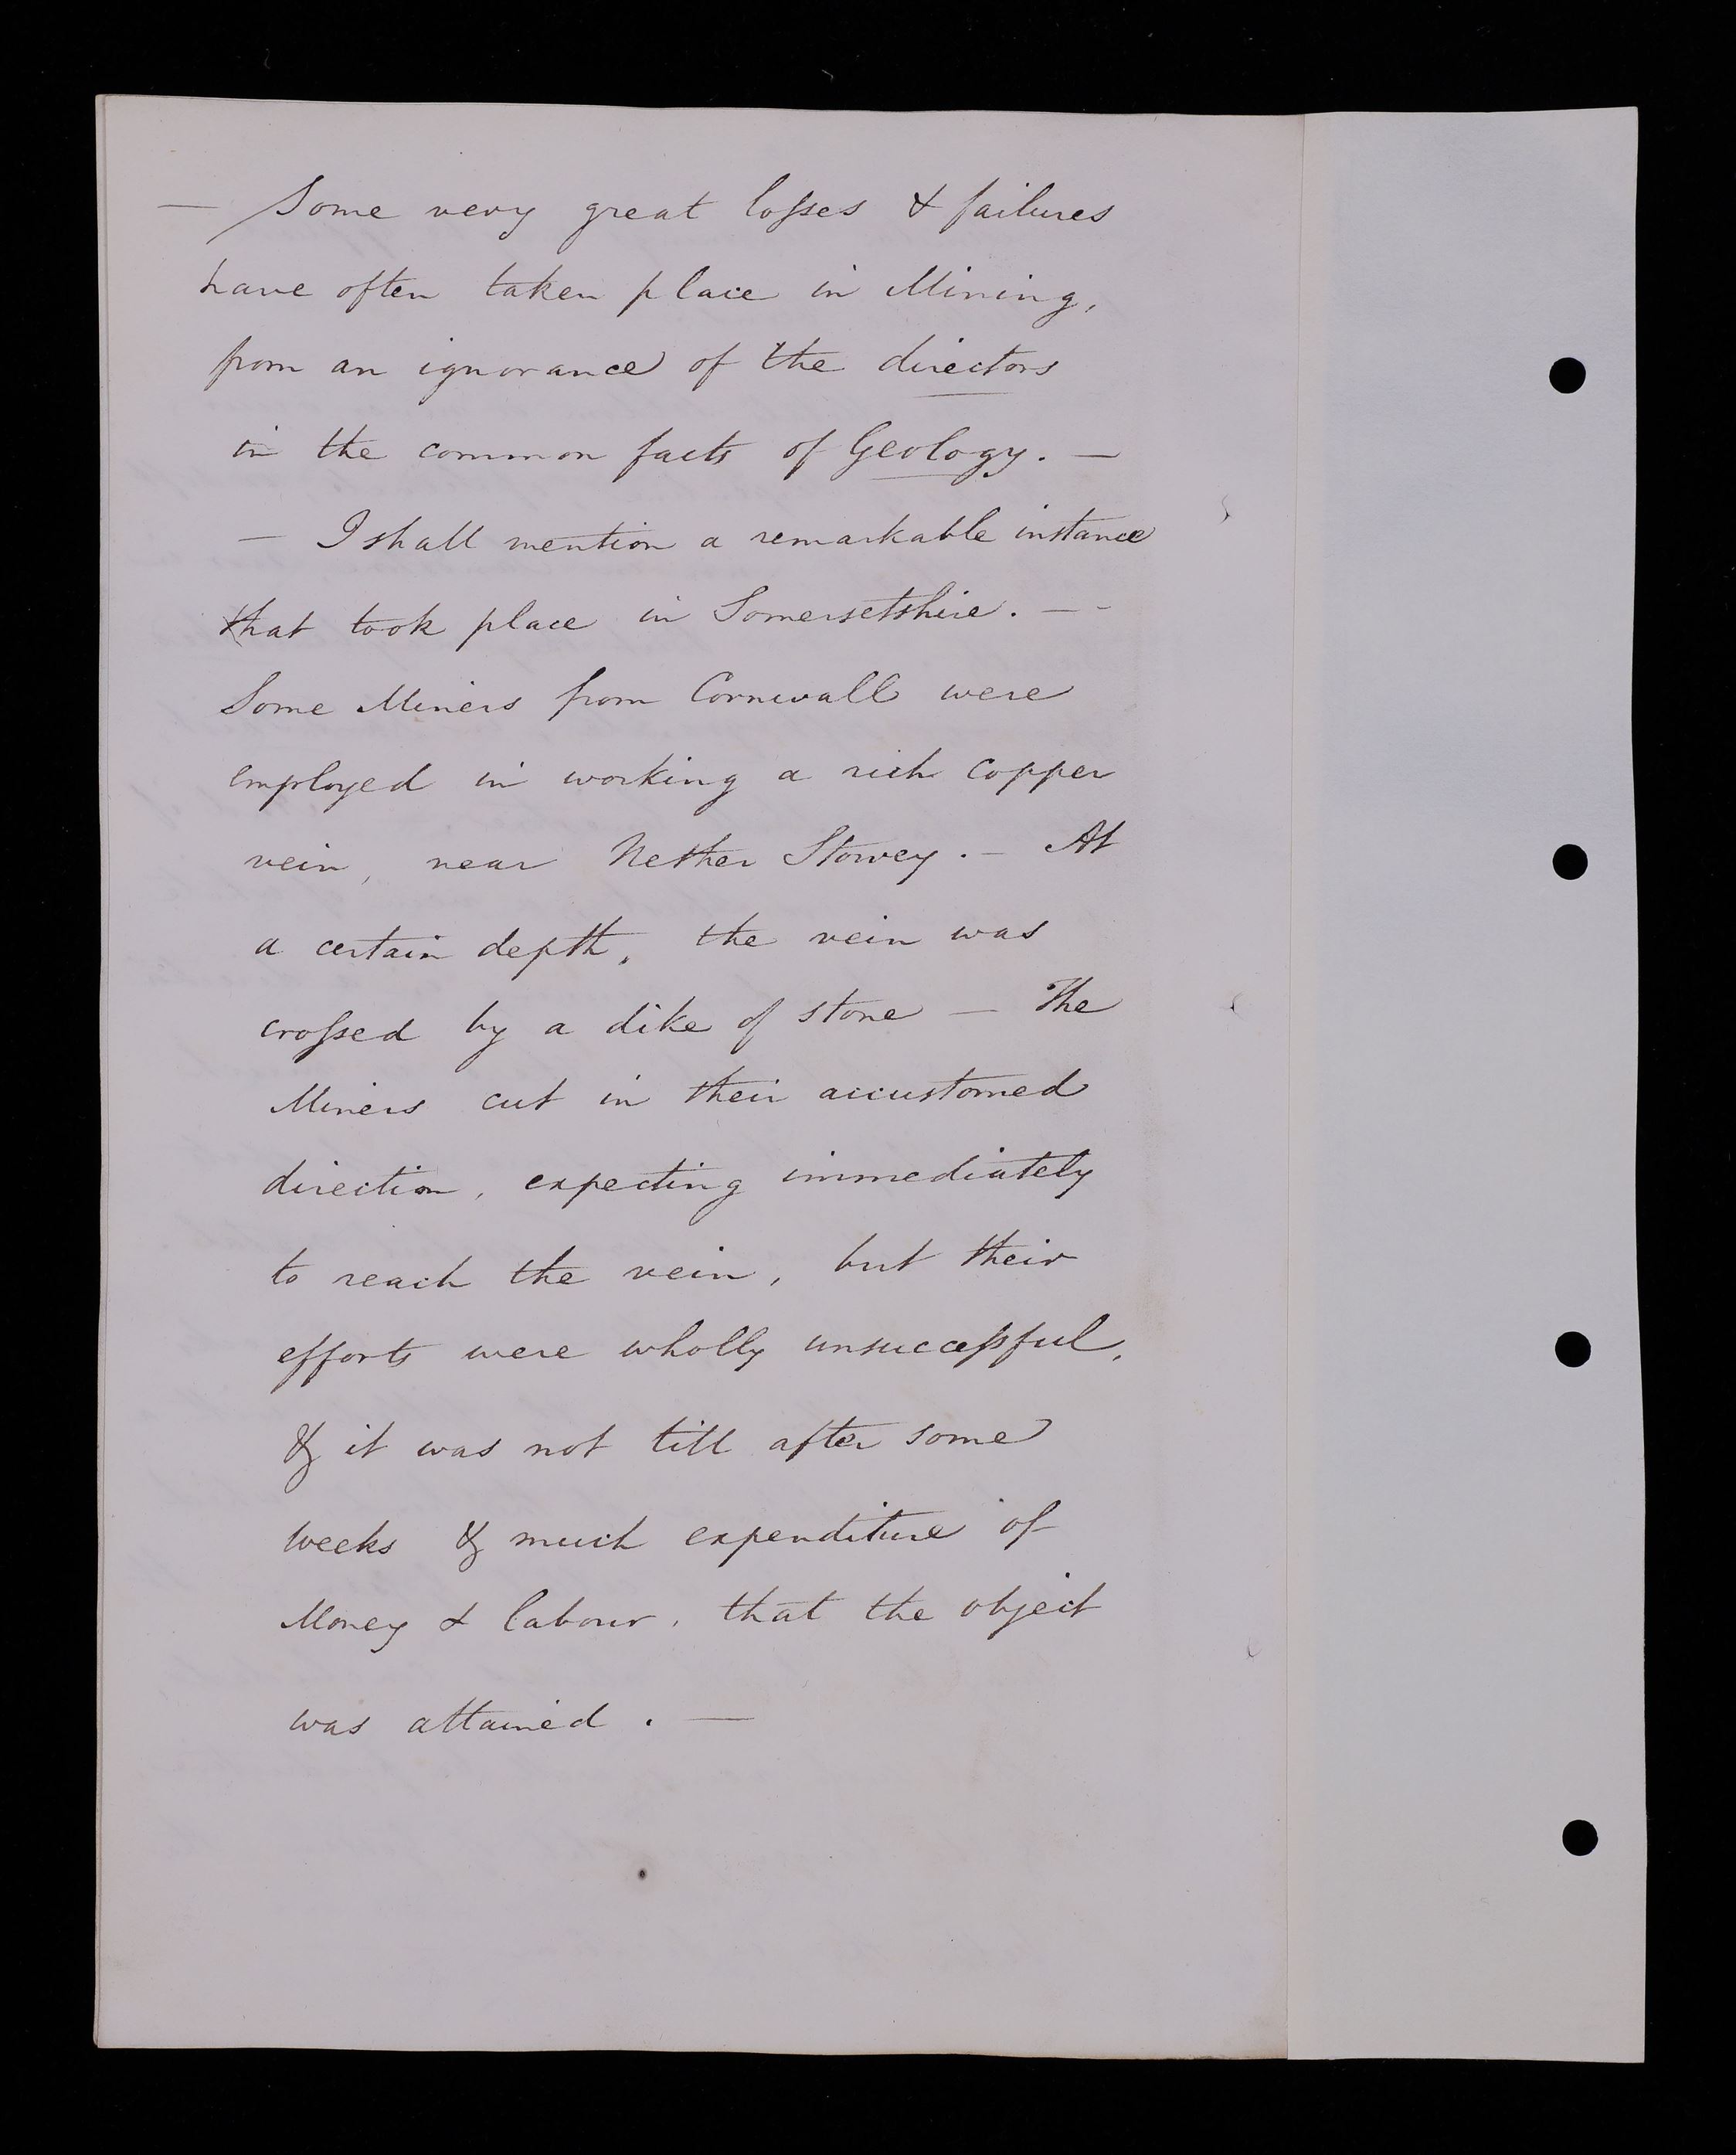 — Some very great losses & failures
have often taken place in Mining,
from an ignorance of the directors
in the common facts of Geology. —
— I shall mention a remarkable instance
that took place in Somersetshire. — -
Some Miners from Cornwall were
employed in working a rich copper
vein, near Nether Stowey. — At
a certain depth, the vein was
crossed by a dike of stone — The
Miners cut in their accustomed
direction, expecting immediately
to reach the vein, but their
efforts were wholly unsuccessful,
& it was not till after some
weeks & much expenditure of
Money & labour, that the object
was attained. —